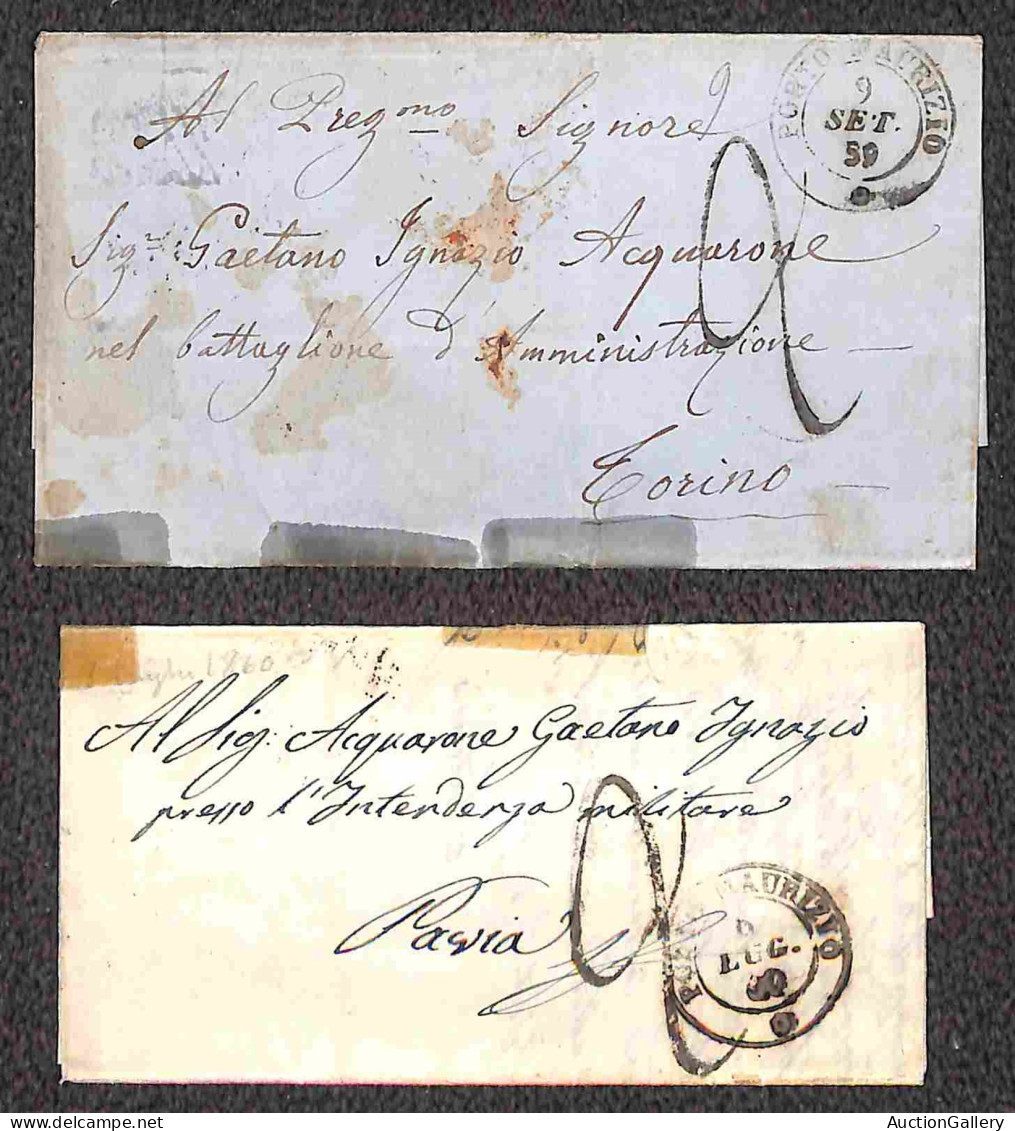 Al Pregmo Signore
Sigr Gaetano Ignazio Acquarone
nel battaglione d'Amministrazione —
Torino —
PORTO MAURIZIO
9
SET.
59
2
1860
Al Sig: Acquarone Gaetano Ignazio
presso l'Intendenza militare
Pavia
2
MAURIZIO
LUG.
60
AuctionGallery